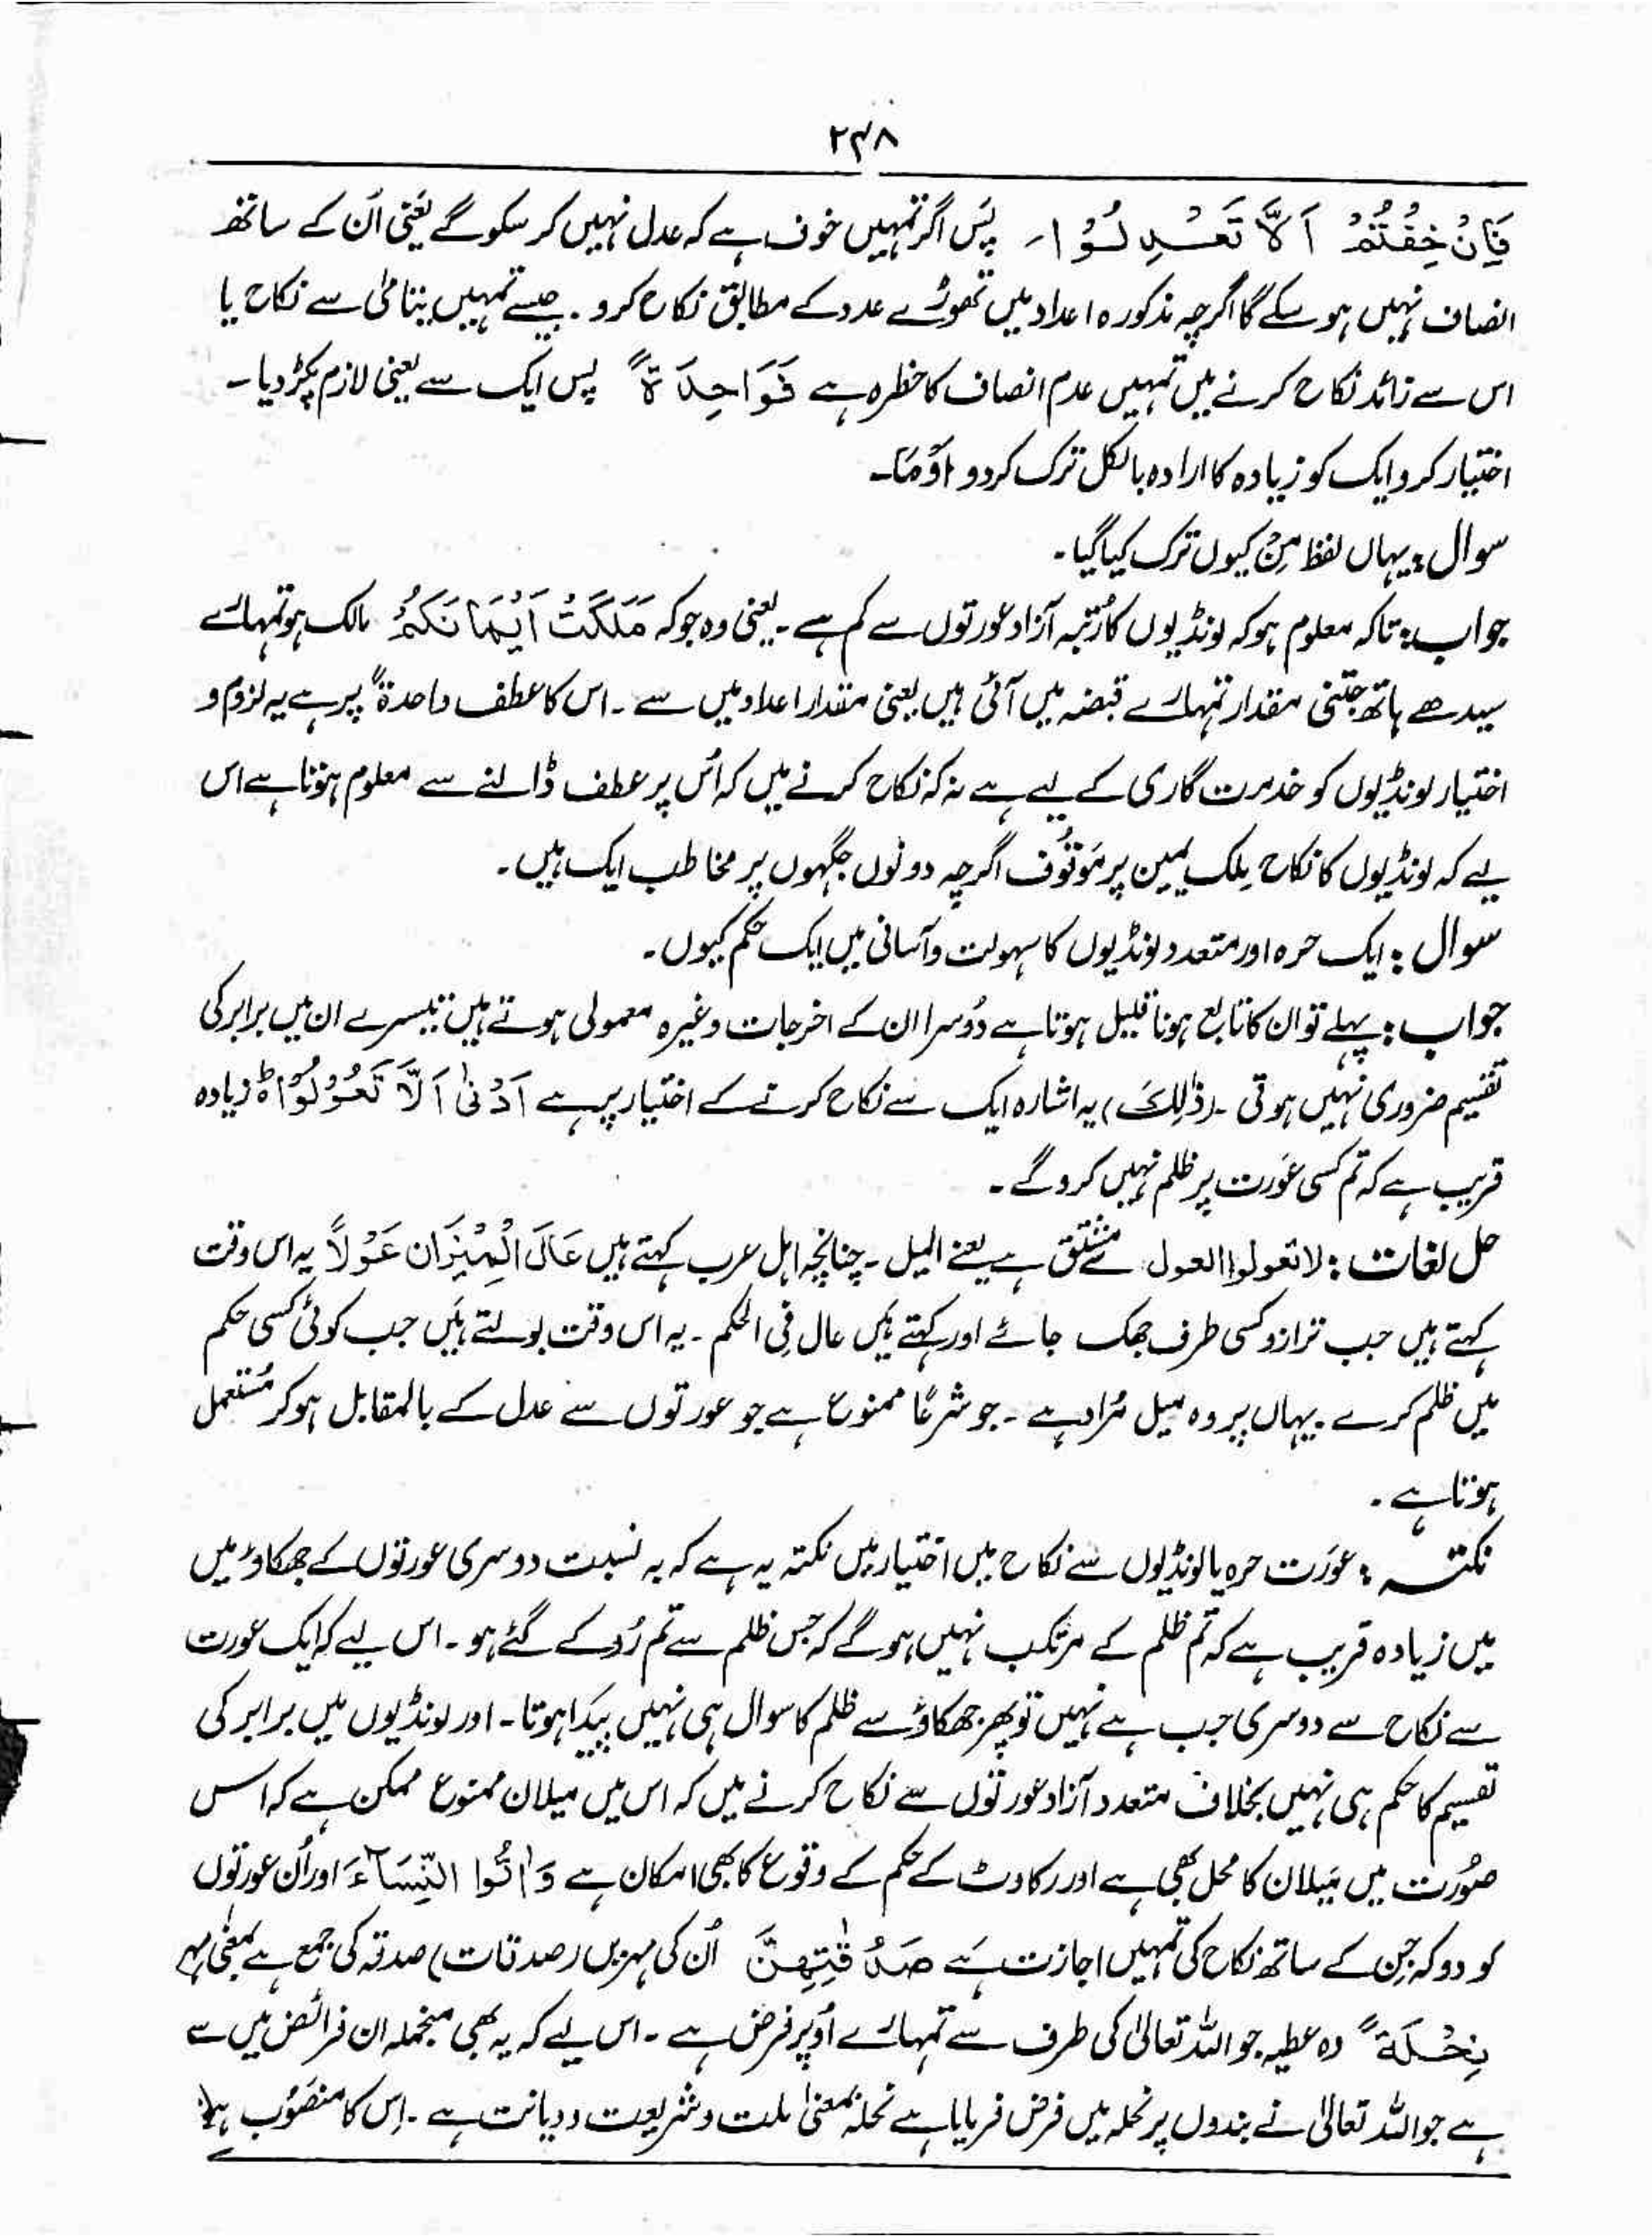 ۲۴۸
فَاِنْ خِفْتُمْ اَلَّا تَعْدِلُوْا۔ پس اگر تمہیں خوف ہے کہ عدل نہیں کر سکو گے یعنی اُن کے ساتھ
انصاف نہیں ہو سکے گا اگرچہ مذکورہ اعداد میں تھوڑے عدد کے مطابق نکاح کرو۔ جیسے تمہیں یتامیٰ سے نکاح یا
اس سے زائد نکاح کرنے میں تمہیں عدم انصاف کا خطرہ ہے فَوَاحِدَةً پس ایک سے یعنی لازم پکڑ دیا۔
اختیار کرو ایک کو زیادہ کا ارادہ بالکل ترک کردو اَوْمَا۔
سوال: یہاں لفظ مِنْ کیوں ترک کیا گیا۔
جواب: تاکہ معلوم ہو کہ لونڈیوں کا رُتبہ آزاد عورتوں سے کم ہے۔ یعنی وہ جو کہ مَلَكَتْ اَيْمَانَكُمْ مالک ہو تمہارے
سیدھے ہاتھ جتنی مقدار تمہارے قبضہ میں آئی ہیں یعنی مقدار اعداد میں سے۔ اس کا عطف واحدةً پر ہے یہ لزوم و
اختیار لونڈیوں کو خدمت گاری کے لیے ہے نہ کہ نکاح کرنے میں کہ اُس پر عطف ڈالنے سے معلوم ہوتا ہے اس
لیے کہ لونڈیوں کا نکاح مِلک یمین پر مَوقُوف اگرچہ دونوں جگہوں پر مخاطب ایک ہیں۔
سوال: ایک حرہ اور متعدد لونڈیوں کا سہولت و آسانی میں ایک حکم کیوں۔
جواب: پہلے تو ان کا تابع ہونا قلیل ہوتا ہے دُوسرا ان کے اخرجات وغیرہ معمولی ہوتے ہیں تیسرے ان میں برابر کی
تقسیم ضروری نہیں ہوتی۔ (ذٰلِكَ) یہ اشارہ ایک سے نکاح کرنے کے اختیار پر ہے اَدْنٰى اَلَّا تَعُوْلُوْا ۃ زیادہ
قریب ہے کہ تم کسی عَورت پر ظلم نہیں کرو گے۔
حل لغات: لا تعولوا العول سے مشتق ہے یعنے المیل۔ چنانچہ اہل عرب کہتے ہیں عَالَ الْمِيْزَان عَوْلًا یہ اس وقت
کہتے ہیں جب ترازو کسی طرف جھک جائے اور کہتے ہیں عال فی الحکم۔ یہ اس وقت بولتے ہیں جب کوئی کسی حکم
میں ظلم کرے۔ یہاں پر وہ میل مُراد ہے۔ جو شرعًا ممنوع ہے جو عورتوں سے عدل کے بالمقابل ہو کر مُستعمل
ہوتا ہے۔
نکتہ: عَورت حرہ یا لونڈیوں سے نکاح میں اختیار میں نکتہ یہ ہے کہ بہ نسبت دوسری عورتوں کے جھکاؤ میں
میں زیادہ قریب ہے کہ تم ظلم کے مرتکب نہیں ہو گے کہ جس ظلم سے تم رُوکے گئے ہو۔ اس لیے کہ ایک عورت
سے نکاح سے دوسری جب ہے نہیں تو پھر جھکاؤ سے ظلم کا سوال ہی نہیں پیدا ہوتا۔ اور لونڈیوں میں برابر کی
تقسیم کا حکم ہی نہیں بخلاف متعدد آزاد عورتوں سے نکاح کرنے میں کہ اس میں میلان ممنوع ممکن ہے کہ اس
صُورت میں مَیلان کا محل بھی ہے اور رکاوٹ کے حکم کے وقوع کا بھی امکان ہے وَاٰتُوا النِّسَآءَ اور اُن عورتوں
کو دو کہ جِن کے ساتھ نکاح کی تمہیں اجازت ہے صَدُقٰتِهِنَّ اُن کی مہریں (صدقات) صدقہ کی جمع ہے بمعنیٰ مہر
نِحْلَةً وہ عطیہ جو اللہ تعالیٰ کی طرف سے تمہارے اُوپر فرض ہے۔ اس لیے کہ یہ بھی منجملہ ان فرائض میں سے
ہے جو اللہ تعالیٰ نے بندوں پر نحلہ میں فرض فرمایا ہے نحلہ بمعنیٰ ملت و شریعت و دیانت ہے۔ اِس کا منصُوب